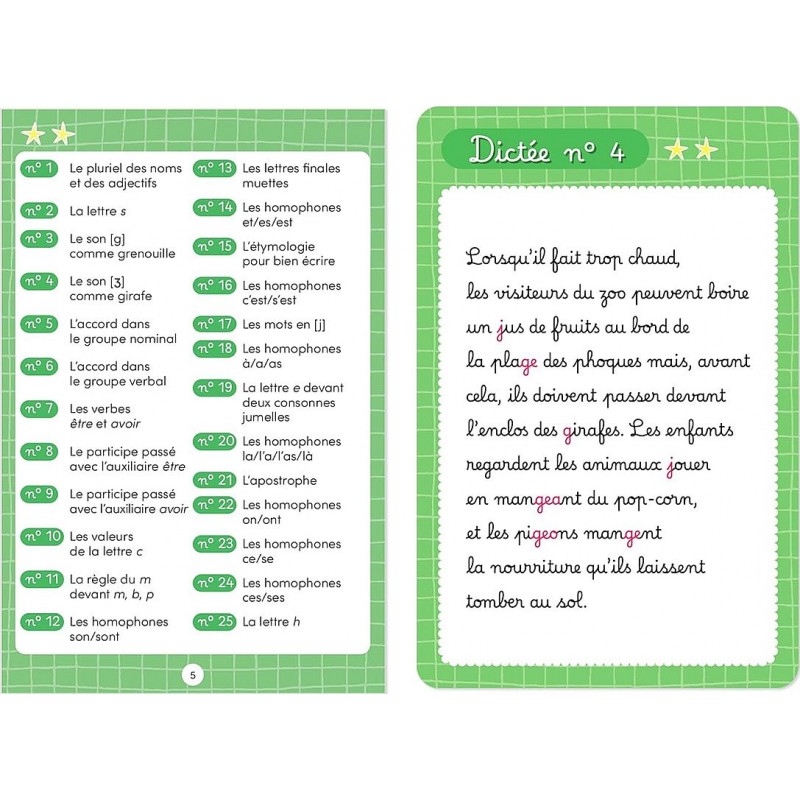 n° 1 Le pluriel des noms
et des adjectifs
n° 2 La lettre s
n° 3 Le son [g]
comme grenouille
n° 4 Le son [ʒ]
comme girafe
n° 5 L'accord dans
le groupe nominal
n° 6 L'accord dans
le groupe verbal
n° 7 Les verbes
être et avoir
n° 8 Le participe passé
avec l'auxiliaire être
n° 9 Le participe passé
avec l'auxiliaire avoir
n° 10 Les valeurs
de la lettre c
n° 11 La règle du m
devant m, b, p
n° 12 Les homophones
son/sont
n° 13 Les lettres finales
muettes
n° 14 Les homophones
et/es/est
n° 15 L'étymologie
pour bien écrire
n° 16 Les homophones
c'est/s'est
n° 17 Les mots en [j]
n° 18 Les homophones
à/a/as
n° 19 La lettre e devant
deux consonnes
jumelles
n° 20 Les homophones
la/l'a/l'as/là
n° 21 L'apostrophe
n° 22 Les homophones
on/ont
n° 23 Les homophones
ce/se
n° 24 Les homophones
ces/ses
n° 25 La lettre h
5
Dictée n° 4
Lorsqu'il fait trop chaud,
les visiteurs du zoo peuvent boire
un jus de fruits au bord de
la plage des phoques mais, avant
cela, ils doivent passer devant
l'enclos des girafes. Les enfants
regardent les animaux jouer
en mangeant du pop-corn,
et les pigeons mangent
la nourriture qu'ils laissent
tomber au sol.